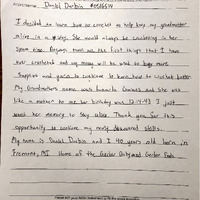 Daniel Durbin #0516514
I decided to learn how to crochet to help keep my grandmother
alive in a way. She would always be crocheting in her
spare time. Penguin must are the first things that I have
ever crocheted and my money will be what to buy more
supplies and yarn to continue to learn how to crochet better.
My Grandmothers name was and she was
like a mother to me her birthday was 12-14-43 I just
want her memory to stay alive. Thank you for this
opportunity to continue my newly discovered skills.
My name is Daniel Durbin and I 40 years old born in
Fremont, MI Home of the Gerber Baby and Gerber Foods